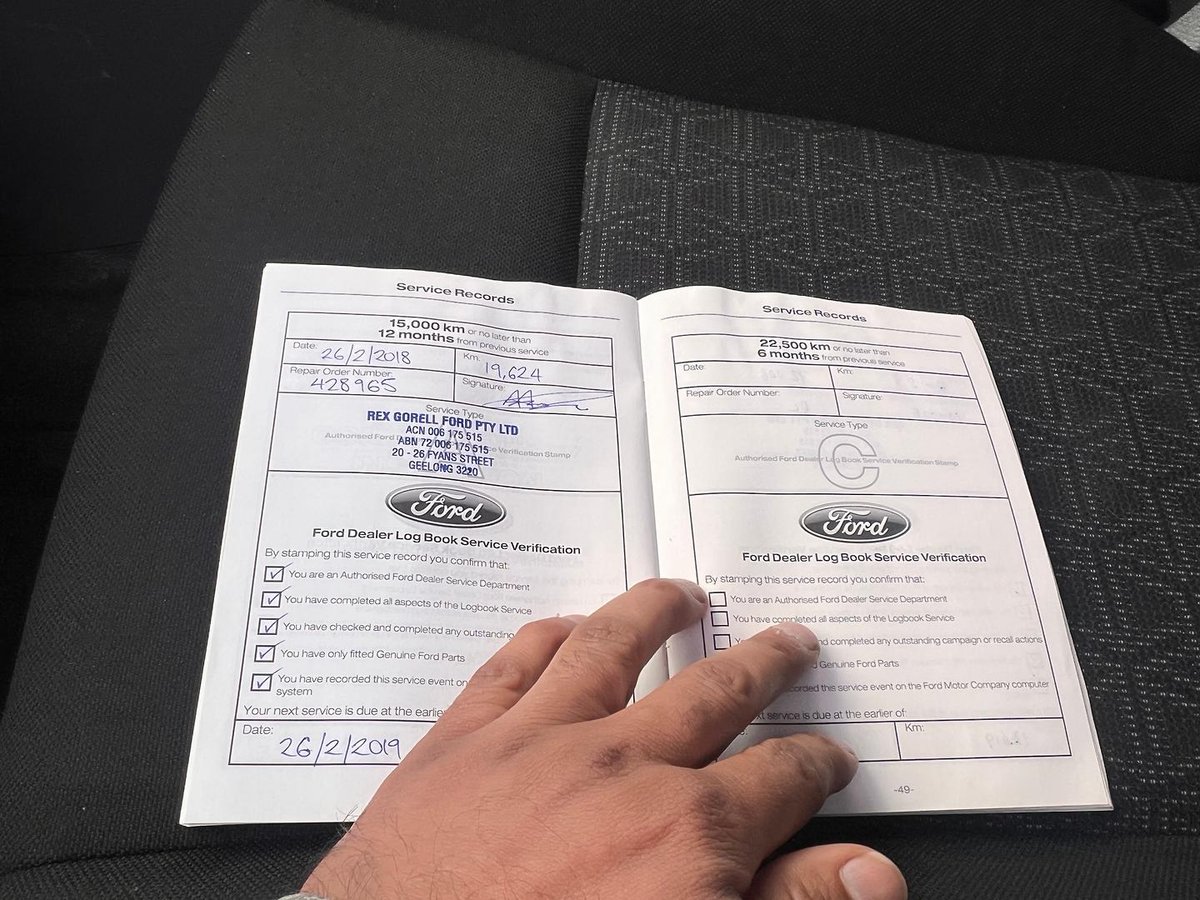 Service Records
15,000 km or no later than
12 months from previous service
Date: 26/2/2018
Km: 19,624
Repair Order Number: 428965
Signature:
Service Type
REX GORELL FORD PTY LTD
ACN 006 175 515
Authorised Ford Service Verification Stamp
ABN 72 006 175 515
20 - 26 FYANS STREET
GEELONG 3220
Ford
Ford Dealer Log Book Service Verification
By stamping this service record you confirm that:
You are an Authorised Ford Dealer Service Department
You have completed all aspects of the Logbook Service
You have checked and completed any outstanding
You have only fitted Genuine Ford Parts
You have recorded this service event on
system
Your next service is due at the earlier
Date: 26/2/2019
Service Records
22,500 km or no later than
6 months from previous service
Date:
Km:
Repair Order Number:
Signature:
Service Type
C
Authorised Ford Dealer Log Book Service Verification Stamp
Ford
Ford Dealer Log Book Service Verification
By stamping this service record you confirm that:
You are an Authorised Ford Dealer Service Department
You have completed all aspects of the Logbook Service
and completed any outstanding campaign or recall actions
Genuine Ford Parts
this service event on the Ford Motor Company computer
service is due at the earlier of:
Km:
-49-